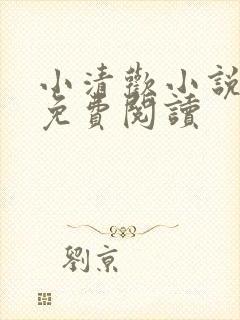 小清歡小說
免費閱讀
劉京